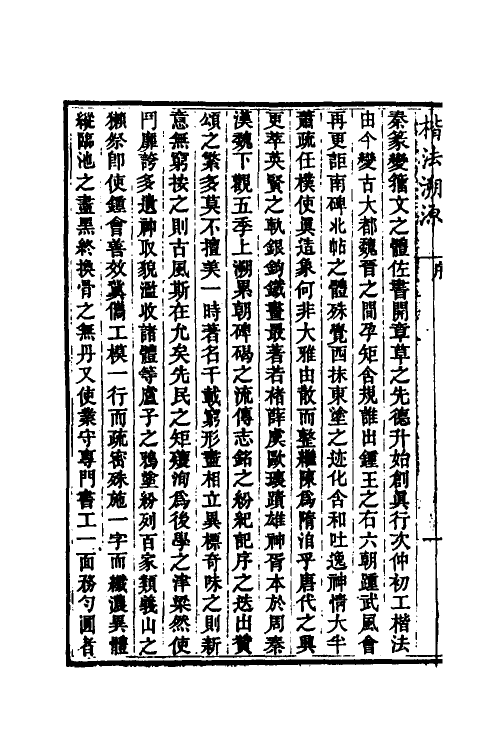 楷法溯源 序
秦篆變籀文之體佐書開章草之先德升始創眞行次仲初工楷法
由今變古大都魏晉之間孕矩含規誰出鍾王之右六朝踵武風會
再更詎南碑北帖之體殊覺西抹東塗之迹化含和吐逸神情大半
蕭疏任樸使眞造象何非大雅由散而整繼陳爲隋洎乎唐代之興
更萃英賢之軌銀鉤鐵畫最著若楮薛虞歐瓌蹟雄神胥本於周秦
漢魏下觀五季上溯累朝碑碣之流傳志銘之紛紀記序之迭出贊
頌之繁多莫不擅美一時著名千載窮形盡相立異標奇味之則新
意無窮按之則古風斯在允矣先民之矩矱洵爲後學之津梁然使
門靡誇多遺神取貌濫收諸體等盧子之鴉塗紛列百家類義山之
獺祭卽使鍾會善效冀僞工模一行而疏密殊施一字而纖濃異體
縱臨池之盡黑終換骨之無丹又使業守專門書工一面務勻圓者